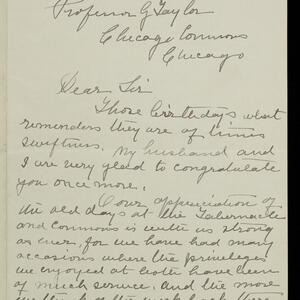 Professor G Taylor
Chicago Commons
Chicago
Dear Sir
Those birthdays what
reminders they are of times
swiftness. My husband and
I are very glad to congratulate
you once more.
Our appreciation of
the old days at the Tabernacle
and Commons is with us strong
as ever, for we have had many
occasions where the privileges
we enjoyed at both have been
of much service. and the more